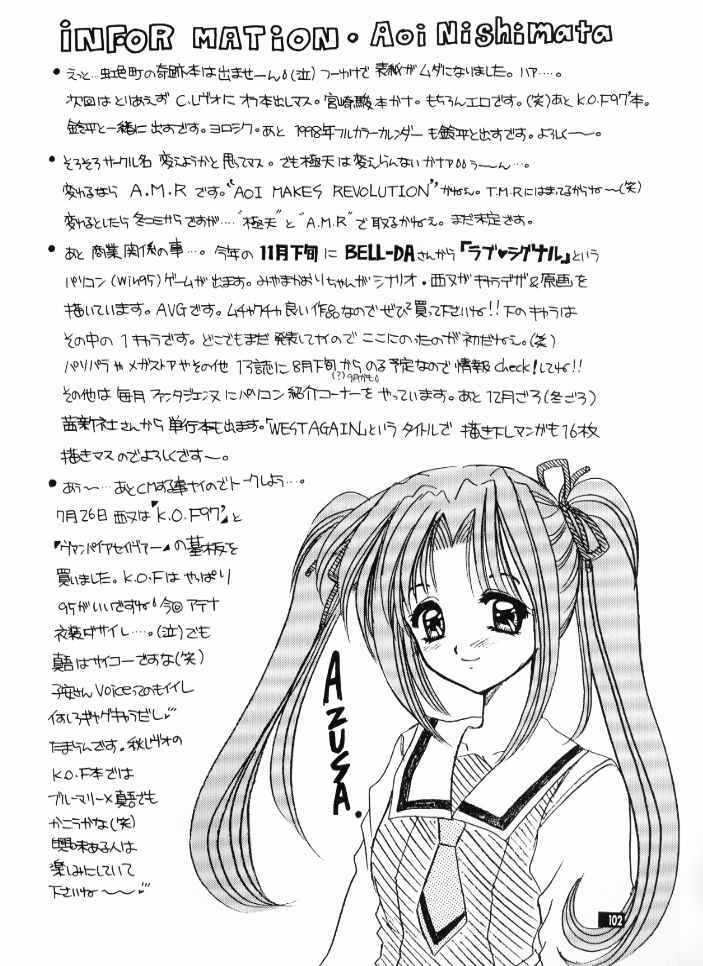 INFORMATION・Aoi Nishimata
●えっと…虹色町の奇跡本は出ませーん!(泣)つーかけで表紙がムダになりました。ハァ…。
次回はとりあえず C.レヴォにオフ本出しマス。宮崎駿本カナ。もちろんエロです。(笑)あと K.O.F97'本。
鈴平と一緒に出すです。ヨロシク。あと 1998年フルカラーカレンダーも鈴平と出すです。よろしくー〜。
●そろそろサークル名 変えようかと思ってマス。でも極天は変えらんないかナァ。うーん…。
変わるなら A.M.R です。"AOI MAKES REVOLUTION"かねぇ。T.M.Rにはまってるからね〜(笑)
変わるとしたら冬コミからですが…."極天"と"A.M.R"で取るかねぇ。まだ未定です。
●あと 商業関係の事…。今年の 11月下旬に BELL-DAさんから「ラブ♥シグナル」という
パソコン(Win95)ゲームが出ます。みやまかおりちゃんがシナリオ・西又がキャラデザ&原画を
描いています。AVGです。ムチャクチャ良い作品なのでぜひ買って下さいね!!下のキャラは
その中の1キャラです。どこでもまだ発表してナイのでここにのったのが初だねぇ。(笑)
パソパラやメガストアやその他 13誌に8月下旬からのる予定なので情報check!してね!!
(?)9月かも。
その他は毎月ファンタジェンヌにパソコン紹介コーナーをやっています。あと12月ごろ(冬ごろ)
茜新社さんから単行本も出ます。「WEST AGAIN」というタイトルで 描き下しマンガも16枚
描きマスのでよろしくです〜。
●あぅ〜…あとCMする事ナイのでトークしよう…。
7月26日 西又は『K.O.F97'』と
『ヴァンパイアセイヴァー』の基板を
買いました。K.O.Fはやっぱり
95がいいですね!今回アテナ
衣装ダサイし….(泣)でも
真吾はサイコーですな(笑)
子安さんVoiceってのもイイし
何しろギャグキャラだし
たまらんです。秋レヴォの
K.O.F本では
ブルーマリー×真吾でも
かこうかな(笑)
興味ある人は
楽しみにしていて
下さいね〜〜
AZUSA.
102